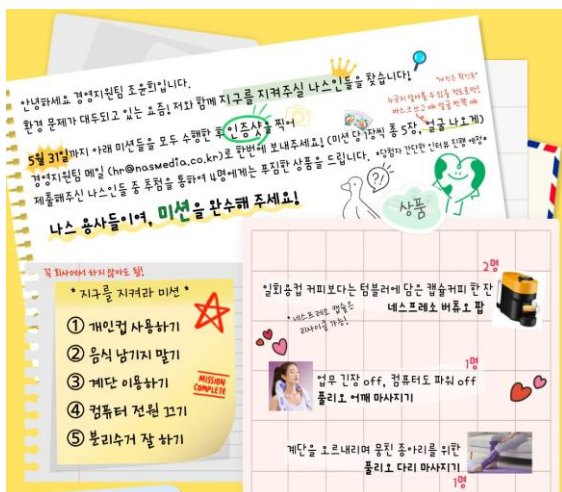 안녕하세요 경영지원팀 조윤희입니다.
환경 문제가 대두되고 있는 요즘! 저와 함께 지구를 지켜주실 나스인들을 찾습니다!
5월 31일까지 아래 미션들을 모두 수행한 후 인증샷을 찍어
경영지원팀 메일 (hr@nasmedia.co.kr)로 한번에 보내주세요! (미션 당 1장씩 총 5장, 얼굴 나오게)
제출해주신 나스인들 중 추첨을 통하여 4명에게는 푸짐한 상품을 드립니다. *당첨자 간단한 인터뷰 진행 예정*
나스 용사들이여, 미션을 완수해 주세요!
누군지 알아볼 수 있을 정도로만!
마스크 쓰고 OK 얼굴 반쪽 OK
상품
꼭 회사에서 하지 않아도 됨!
* 지구를 지켜라 미션 *
① 개인컵 사용하기
② 음식 남기지 말기
③ 계단 이용하기
④ 컴퓨터 전원 끄기
⑤ 분리수거 잘 하기
MISSION
COMPLETE
2명
일회용컵 커피보다는 텀블러에 담은 캡슐커피 한 잔
네스프레소 버츄오 팝
*네스프레소 캡슐은
리사이클 가능!
1명
업무 긴장 off, 컴퓨터도 파워 off
풀리오 어깨 마사지기
계단을 오르내리며 뭉친 종아리를 위한
풀리오 다리 마사지기
1명